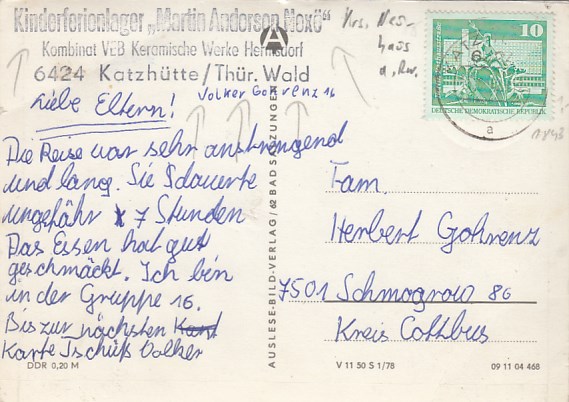 Kinderferienlager „Martin Andersen Nexö“
Kombinat VEB Keramische Werke Hermsdorf
6424 Katzhütte/Thür. Wald
Volker Gohrenz 16
Liebe Eltern!
Die Reise war sehr anstrengend
und lang. Sie dauerte
ungefähr 7 Stunden
Das Essen hat gut
geschmäckt. Ich bin
in der Gruppe 16.
Bis zur nächsten Kart
Karte Tschüß Volker
DDR 0,20 M
AUSLESE-BILD-VERLAG/62 BAD SALZUNGEN
10
DEUTSCHE DEMOKRATISCHE REPUBLIK
a
Fam.
Herbert Gohrenz
7501 Schmogrow 86
Kreis Cottbus
V 11 50 S 1/78
09 11 04 468